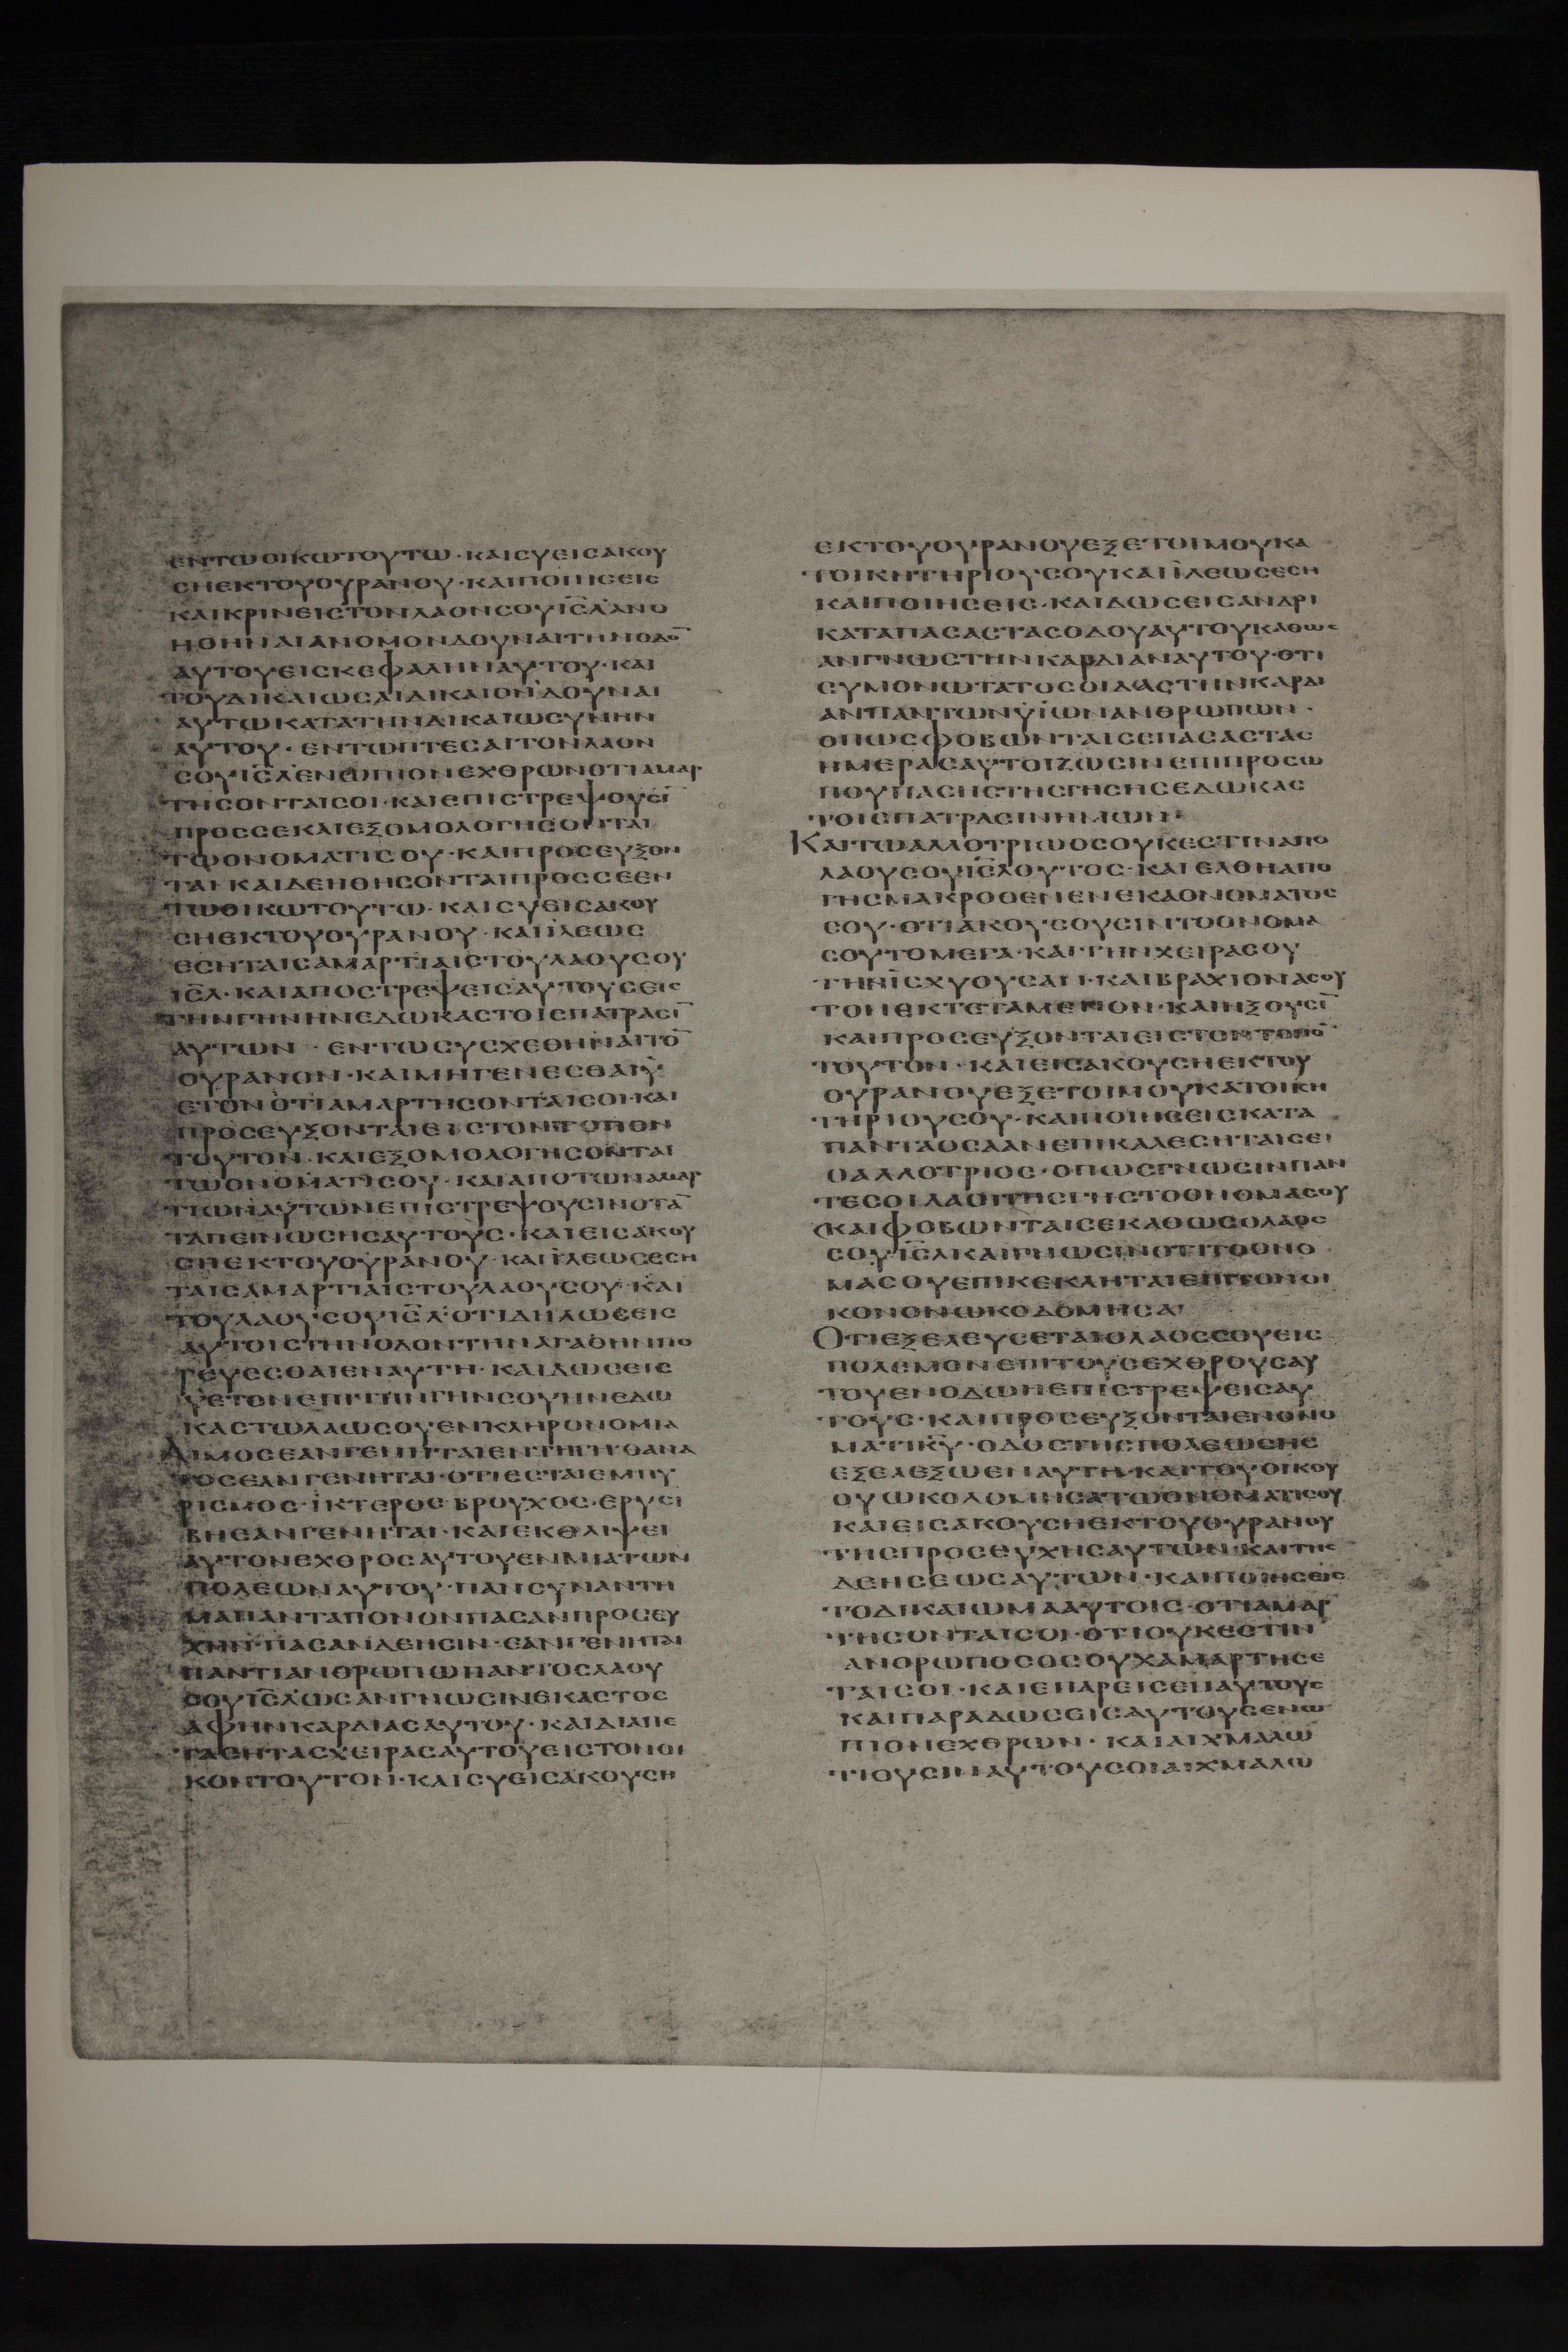 ΕΝΤΩΟΙΚΩΤΟΥΤΩ·ΚΑΙϹΥΕΙϹΑΚΟΥ
ϹΗΕΚΤΟΥΟΥΡΑΝΟΥ·ΚΑΙΠΟΙΗϹΕΙϹ
ΚΑΙΚΡΙΝΕΙϹΤΟΝΛΑΟΝϹΟΥΙϹ̅Λ̅ΑΝΟ
ΜΗΘΗΝΑΙΑΝΟΜΟΝΔΟΥΝΑΙΤΗΝΟΔΟ̅
ΑΥΤΟΥΕΙϹΚΕΦΑΛΗΝΑΥΤΟΥ·ΚΑΙ
ΤΟΥΔΙΚΑΙΩϹΑΙΔΙΚΑΙΟΝΔΟΥΝΑΙ
ΑΥΤΩΚΑΤΑΤΗΝΔΙΚΑΙΩϹΥΝΗΝ
ΑΥΤΟΥ·ΕΝΤΩΠΤΕϹΑΙΤΟΝΛΑΟΝ
ϹΟΥΙϹ̅Λ̅ΕΝΩΠΙΟΝΕΧΘΡΩΝΟΤΙΑΜΑΡ
ΤΗϹΟΝΤΑΙϹΟΙ·ΚΑΙΕΠΙϹΤΡΕΨΟΥϹΙ̅
ΠΡΟϹϹΕΚΑΙΕΞΟΜΟΛΟΓΗϹΟΝΤΑΙ
ΤΩΟΝΟΜΑΤΙϹΟΥ·ΚΑΙΠΡΟϹΕΥΞΟΝ
ΤΑΙΚΑΙΔΕΗΘΗϹΟΝΤΑΙΠΡΟϹϹΕΕΝ
ΤΩΟΙΚΩΤΟΥΤΩ·ΚΑΙϹΥΕΙϹΑΚΟΥ
ϹΗΕΚΤΟΥΟΥΡΑΝΟΥ·ΚΑΙΪΛΕΩϹ
ΕϹΗΤΑΙϹΑΜΑΡΤΙΑΙϹΤΟΥΛΑΟΥϹΟΥ
ΙϹ̅Λ̅·ΚΑΙΑΠΟϹΤΡΕΨΕΙϹΑΥΤΟΥϹΕΙϹ
ΤΗΝΓΗΝΗΝΕΔΩΚΑϹΤΟΙϹΠΑΤΡΑϹΙ̅
ΑΥΤΩΝ·ΕΝΤΩϹΥϹΧΕΘΗΝΑΙΤΟ̅
ΟΥΡΑΝΟΝ·ΚΑΙΜΗΓΕΝΕϹΘΑΙΫ
ΕΤΟΝΟΤΙΑΜΑΡΤΗϹΟΝΤΑΙϹΟΙ·ΚΑΙ
ΠΡΟϹΕΥΞΟΝΤΑΙΕΙϹΤΟΝΤΟΠΟΝ
ΤΟΥΤΟΝ·ΚΑΙΕΞΟΜΟΛΟΓΗϹΟΝΤΑΙ
ΤΩΟΝΟΜΑΤΙϹΟΥ·ΚΑΙΑΠΟΤΩΝΑΜΑΡ
ΤΙΩΝΑΥΤΩΝΕΠΙϹΤΡΕΨΟΥϹΙΝΟΤΑ̅
ΤΑΠΕΙΝΩϹΗϹΑΥΤΟΥϹ·ΚΑΙΕΙϹΑΚΟΥ
ϹΗΕΚΤΟΥΟΥΡΑΝΟΥ·ΚΑΙΪΛΕΩϹΕϹΗ
ΤΑΙϹΑΜΑΡΤΙΑΙϹΤΟΥΛΑΟΥϹΟΥ·ΚΑΙ
ΤΟΥΛΑΟΥϹΟΥΙϹ̅Λ̅·ΟΤΙΔΗΛΩϹΕΙϹ
ΑΥΤΟΙϹΤΗΝΟΔΟΝΤΗΝΑΓΑΘΗΝΠΟ
ΡΕΥΕϹΘΑΙΕΝΑΥΤΗ·ΚΑΙΔΩϹΕΙϹ
ΥΕΤΟΝΕΠΙΤΗΝΓΗΝϹΟΥΗΝΕΔΩ
ΚΑϹΤΩΛΑΩϹΟΥΕΝΚΛΗΡΟΝΟΜΙΑ
ΛΙΜΟϹΕΑΝΓΕΝΗΤΑΙΕΝΤΗΓΗΘΑΝΑ
ΤΟϹΕΑΝΓΕΝΗΤΑΙ·ΟΤΙΕϹΤΑΙΕΜΠΥ
ΡΙϹΜΟϹ·ΪΚΤΕΡΟϹ·ΒΡΟΥΧΟϹ·ΕΡΥϹΙ
ΒΗΕΑΝΓΕΝΗΤΑΙ·ΚΑΙΕΚΘΛΙΨΕΙ
ΑΥΤΟΝΕΧΘΡΟϹΑΥΤΟΥΕΝΜΙΑΤΩΝ
ΠΟΛΕΩΝΑΥΤΟΥ·ΠΑΝϹΥΝΑΝΤΗ
ΜΑΠΑΝΤΑΠΟΝΟΝΠΑϹΑΝΠΡΟϹΕΥ
ΧΗΝ·ΠΑϹΑΝΔΕΗϹΙΝ·ΕΑΝΓΕΝΗΤΑΙ
ΠΑΝΤΙΑΝΘΡΩΠΩΠΑΝΤΟϹΛΑΟΥ
ϹΟΥΙϹ̅Λ̅ΩϹΑΝΓΝΩϹΙΝΕΚΑϹΤΟϹ
ΑΦΗΝΚΑΡΔΙΑϹΑΥΤΟΥ·ΚΑΙΔΙΑΠΕ
ΤΑϹΗΤΑϹΧΕΙΡΑϹΑΥΤΟΥΕΙϹΤΟΝΟΙ
ΚΟΝΤΟΥΤΟΝ·ΚΑΙϹΥΕΙϹΑΚΟΥϹΗ
ΕΚΤΟΥΟΥΡΑΝΟΥΕΞΕΤΟΙΜΟΥΚΑ
ΤΟΙΚΗΤΗΡΙΟΥϹΟΥΚΑΙΪΛΕΩϹΕϹΗ
ΚΑΙΠΟΙΗϹΕΙϹ·ΚΑΙΔΩϹΕΙϹΑΝΔΡΙ
ΚΑΤΑΠΑϹΑϹΤΑϹΟΔΟΥΑΥΤΟΥΚΑΘΩϹ
ΑΝΓΝΩϹΤΗΝΚΑΡΔΙΑΝΑΥΤΟΥ·ΟΤΙ
ϹΥΜΟΝΩΤΑΤΟϹΟΙΔΑϹΤΗΝΚΑΡΔΙ
ΑΝΠΑΝΤΩΝΥΪΩΝΑΝΘΡΩΠΩΝ·
ΟΠΩϹΦΟΒΩΝΤΑΙϹΕΠΑϹΑϹΤΑϹ
ΗΜΕΡΑϹΑΥΤΟΙΖΩϹΙΝΕΠΙΠΡΟϹΩ
ΠΟΥΠΑϹΗϹΤΗϹΓΗϹΗϹΕΔΩΚΑϹ
ΤΟΙϹΠΑΤΡΑϹΙΝΗΜΩΝ·
ΚΑΙΤΩΑΛΛΟΤΡΙΩΟϹΟΥΚΕϹΤΙΝΑΠΟ
ΛΑΟΥϹΟΥΙϹ̅Λ̅ΟΥΤΟϹ·ΚΑΙΕΛΘΗΑΠΟ
ΓΗϹΜΑΚΡΟΘΕΝΕΝΕΚΑΟΝΟΜΑΤΟϹ
ϹΟΥ·ΟΤΙΑΚΟΥϹΟΥϹΙΝΤΟΟΝΟΜΑ
ϹΟΥΤΟΜΕΓΑ·ΚΑΙΤΗΝΧΕΙΡΑϹΟΥ
ΤΗΝΪϹΧΥΟΥϹΑΝ·ΚΑΙΒΡΑΧΙΟΝΑϹΟΥ
ΤΟΝΕΚΤΕΤΑΜΕΝΟΝ·ΚΑΙΗΞΟΥϹΙ̅
ΚΑΙΠΡΟϹΕΥΞΟΝΤΑΙΕΙϹΤΟΝΤΟΠΟ̅
ΤΟΥΤΟΝ·ΚΑΙΕΙϹΑΚΟΥϹΗΕΚΤΟΥ
ΟΥΡΑΝΟΥΕΞΕΤΟΙΜΟΥΚΑΤΟΙΚΗ
ΤΗΡΙΟΥϹΟΥ·ΚΑΙΠΟΙΗϹΕΙϹΚΑΤΑ
ΠΑΝΤΑΟϹΑΑΝΕΠΙΚΑΛΕϹΗΤΑΙϹΕ
ΟΑΛΛΟΤΡΙΟϹ·ΟΠΩϹΓΝΩϹΙΝΠΑΝ
ΤΕϹΟΙΛΑΟΙΤΗϹΓΗϹΤΟΟΝΟΜΑϹΟΥ
ΚΑΙΦΟΒΩΝΤΑΙϹΕΚΑΘΩϹΟΛΑΟϹ
ϹΟΥΙϹ̅Λ̅ΚΑΙΓΝΩϹΙΝΟΤΙΤΟΟΝΟ
ΜΑϹΟΥΕΠΙΚΕΚΛΗΤΑΙΕΠΙΤΟΝΟΙ
ΚΟΝΟΝΩΚΟΔΟΜΗϹΑ·
ΟΤΙΕΞΕΛΕΥϹΕΤΑΙΟΛΑΟϹϹΟΥΕΙϹ
ΠΟΛΕΜΟΝΕΠΙΤΟΥϹΕΧΘΡΟΥϹΑΥ
ΤΟΥΕΝΟΔΩΗΕΠΙϹΤΡΕΨΕΙϹΑΥ
ΤΟΥϹ·ΚΑΙΠΡΟϹΕΥΞΟΝΤΑΙΕΝΟΝΟ
ΜΑΤΙΚ̅Υ̅·ΟΔΟϹΤΗϹΠΟΛΕΩϹΗϹ
ΕΞΕΛΕΞΩΕΝΑΥΤΗ·ΚΑΙΤΟΥΟΙΚΟΥ
ΟΥΩΚΟΔΟΜΗϹΑΤΩΟΝΟΜΑΤΙϹΟΥ
ΚΑΙΕΙϹΑΚΟΥϹΗΕΚΤΟΥΟΥΡΑΝΟΥ
ΤΗϹΠΡΟϹΕΥΧΗϹΑΥΤΩΝ·ΚΑΙΤΗϹ
ΔΕΗϹΕΩϹΑΥΤΩΝ·ΚΑΙΠΟΙΗϹΕΙϹ
ΤΟΔΙΚΑΙΩΜΑΑΥΤΟΙϹ·ΟΤΙΑΜΑΡ
ΤΗϹΟΝΤΑΙϹΟΙ·ΟΤΙΟΥΚΕϹΤΙΝ
ΑΝΘΡΩΠΟϹΟϹΟΥΧΑΜΑΡΤΗϹΕ
ΤΑΙϹΟΙ·ΚΑΙΕΠΑΡΕΙϹΕΠΑΥΤΟΥϹ
ΚΑΙΠΑΡΑΔΩϹΕΙϹΑΥΤΟΥϹΕΝΩ
ΠΙΟΝΕΧΘΡΩΝ·ΚΑΙΑΙΧΜΑΛΩ
ΤΙΟΥϹΙΝΑΥΤΟΥϹΟΙΑΙΧΜΑΛΩ